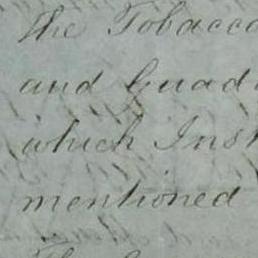 the Tobacco
and Guad
which Ins
mentioned